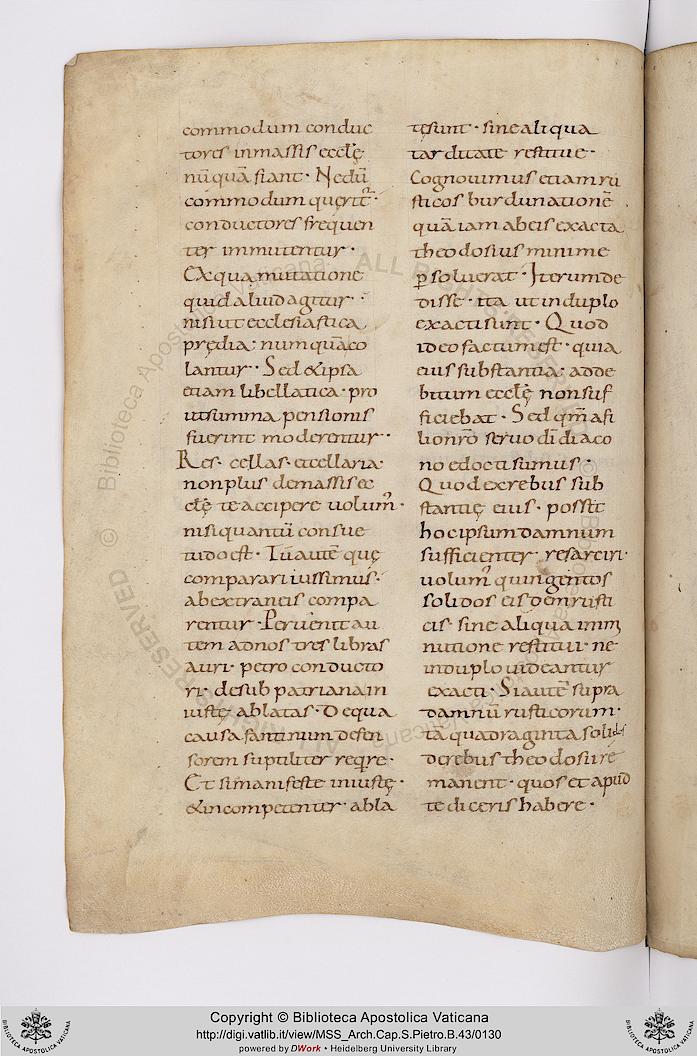 commodum conduc
tores inmassis eccle̅ę
nū quā fiant · Nec dū
commodum querit̅ ·
conductores frequen
ter immutentur ·
Ex qua mutatione
quid aliud agitur ·
nisi ut ecclesiastica
prędia · numquā co
lantur · Sed & ipsa
etiam libellatica · pro
ut summa pensionis
fuerint moderentur ·
Res · cellas · et cellaria ·
non plus demassis ec
cle̅ę te accipere uolum᷒ ·
nisi quantū consue
tudo est · Tū autē quę
comparari iussimus ·
ab extraneis compa
rentur · Peruenit au
tem ad nos tres libras
auri · petro conducto
ri · de sub patriana in
iuste ablatas · De qua
causa fantinum defen
sorem suptiliter req̅re ·
Et si manifeste iniustę ·
& incompetenter · abla
tęsunt · sine aliqua
tarditate restitue ·
Cognouimus etiam ru
sticos burdunationē
quā iam ab eis exacta
theodosius minime
p̱soluerat · Iterum de
disse · ita ut in duplo
exacti sunt · Quod
ideo factum est · quia
eius substantia · ad de
bitum eccle̅ę non suf
ficiebat · Sed qm̅ a fi
lio nr̅o seruo dī diaco
no edocti sumus ·
Quod ex rebus sub
stantię eius · possit
hoc ipsum damnum
sufficienter · resarciri ·
uolum᷒ quingentos
solidos eisdem rusti
cis · sine aliqua imm
nutione restitui · ne
in duplo uideantur
exacti · Si autē supra
damnū rusticorum ·
tā quadraginta solidi
de rebus theodosii re
manent · quos et apud
te diceris habere ·
Copyright © Biblioteca Apostolica Vaticana
http://digi.vatlib.it/view/MSS_Arch.Cap.S.Pietro.B.43/0130
powered by DWork · Heidelberg University Library